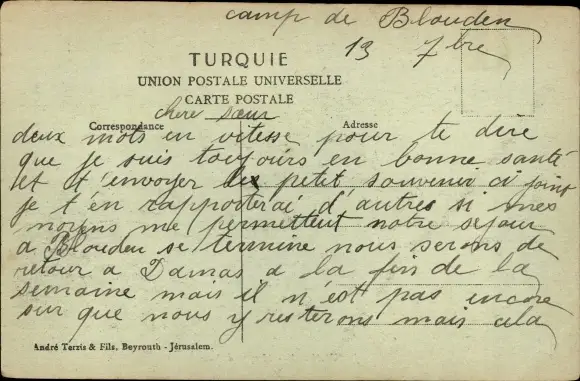 camp de Blouden
13 7bre
TURQUIE
UNION POSTALE UNIVERSELLE
CARTE POSTALE
chere sœur
Correspondance
Adresse
deux mots en vitesse pour te dire
que je suis toujours en bonne santé
et t'envoyer petit souvenir ci joint
je t en rapporterai d'autres si mes
moyens me permettent notre sejour
a Blouden se termine nous serons de
retour a Damas a la fin de la
semaine mais il n'est pas encore
sur que nous y resterons mais cela
André Terzis & Fils, Beyrouth - Jérusalem.